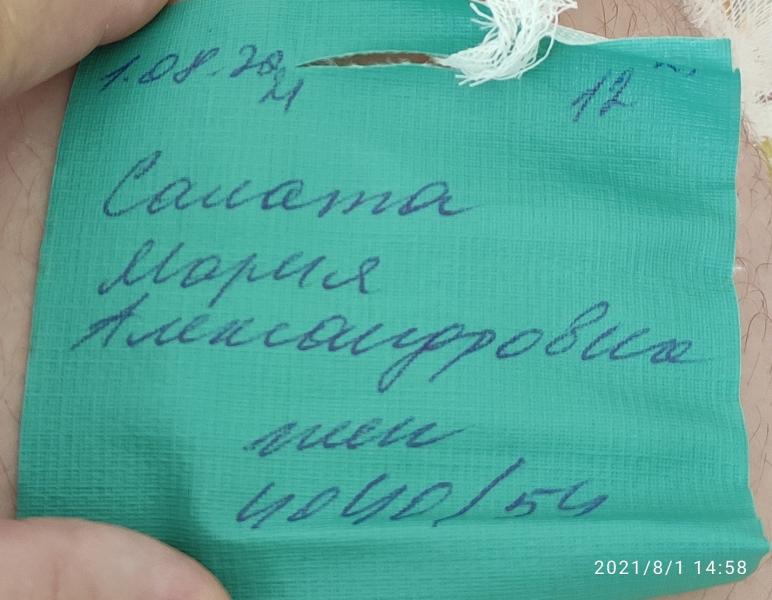 1.08.2021 12
Саката
Мария
Александровна
жен
4040/54
2021/8/1 14:58